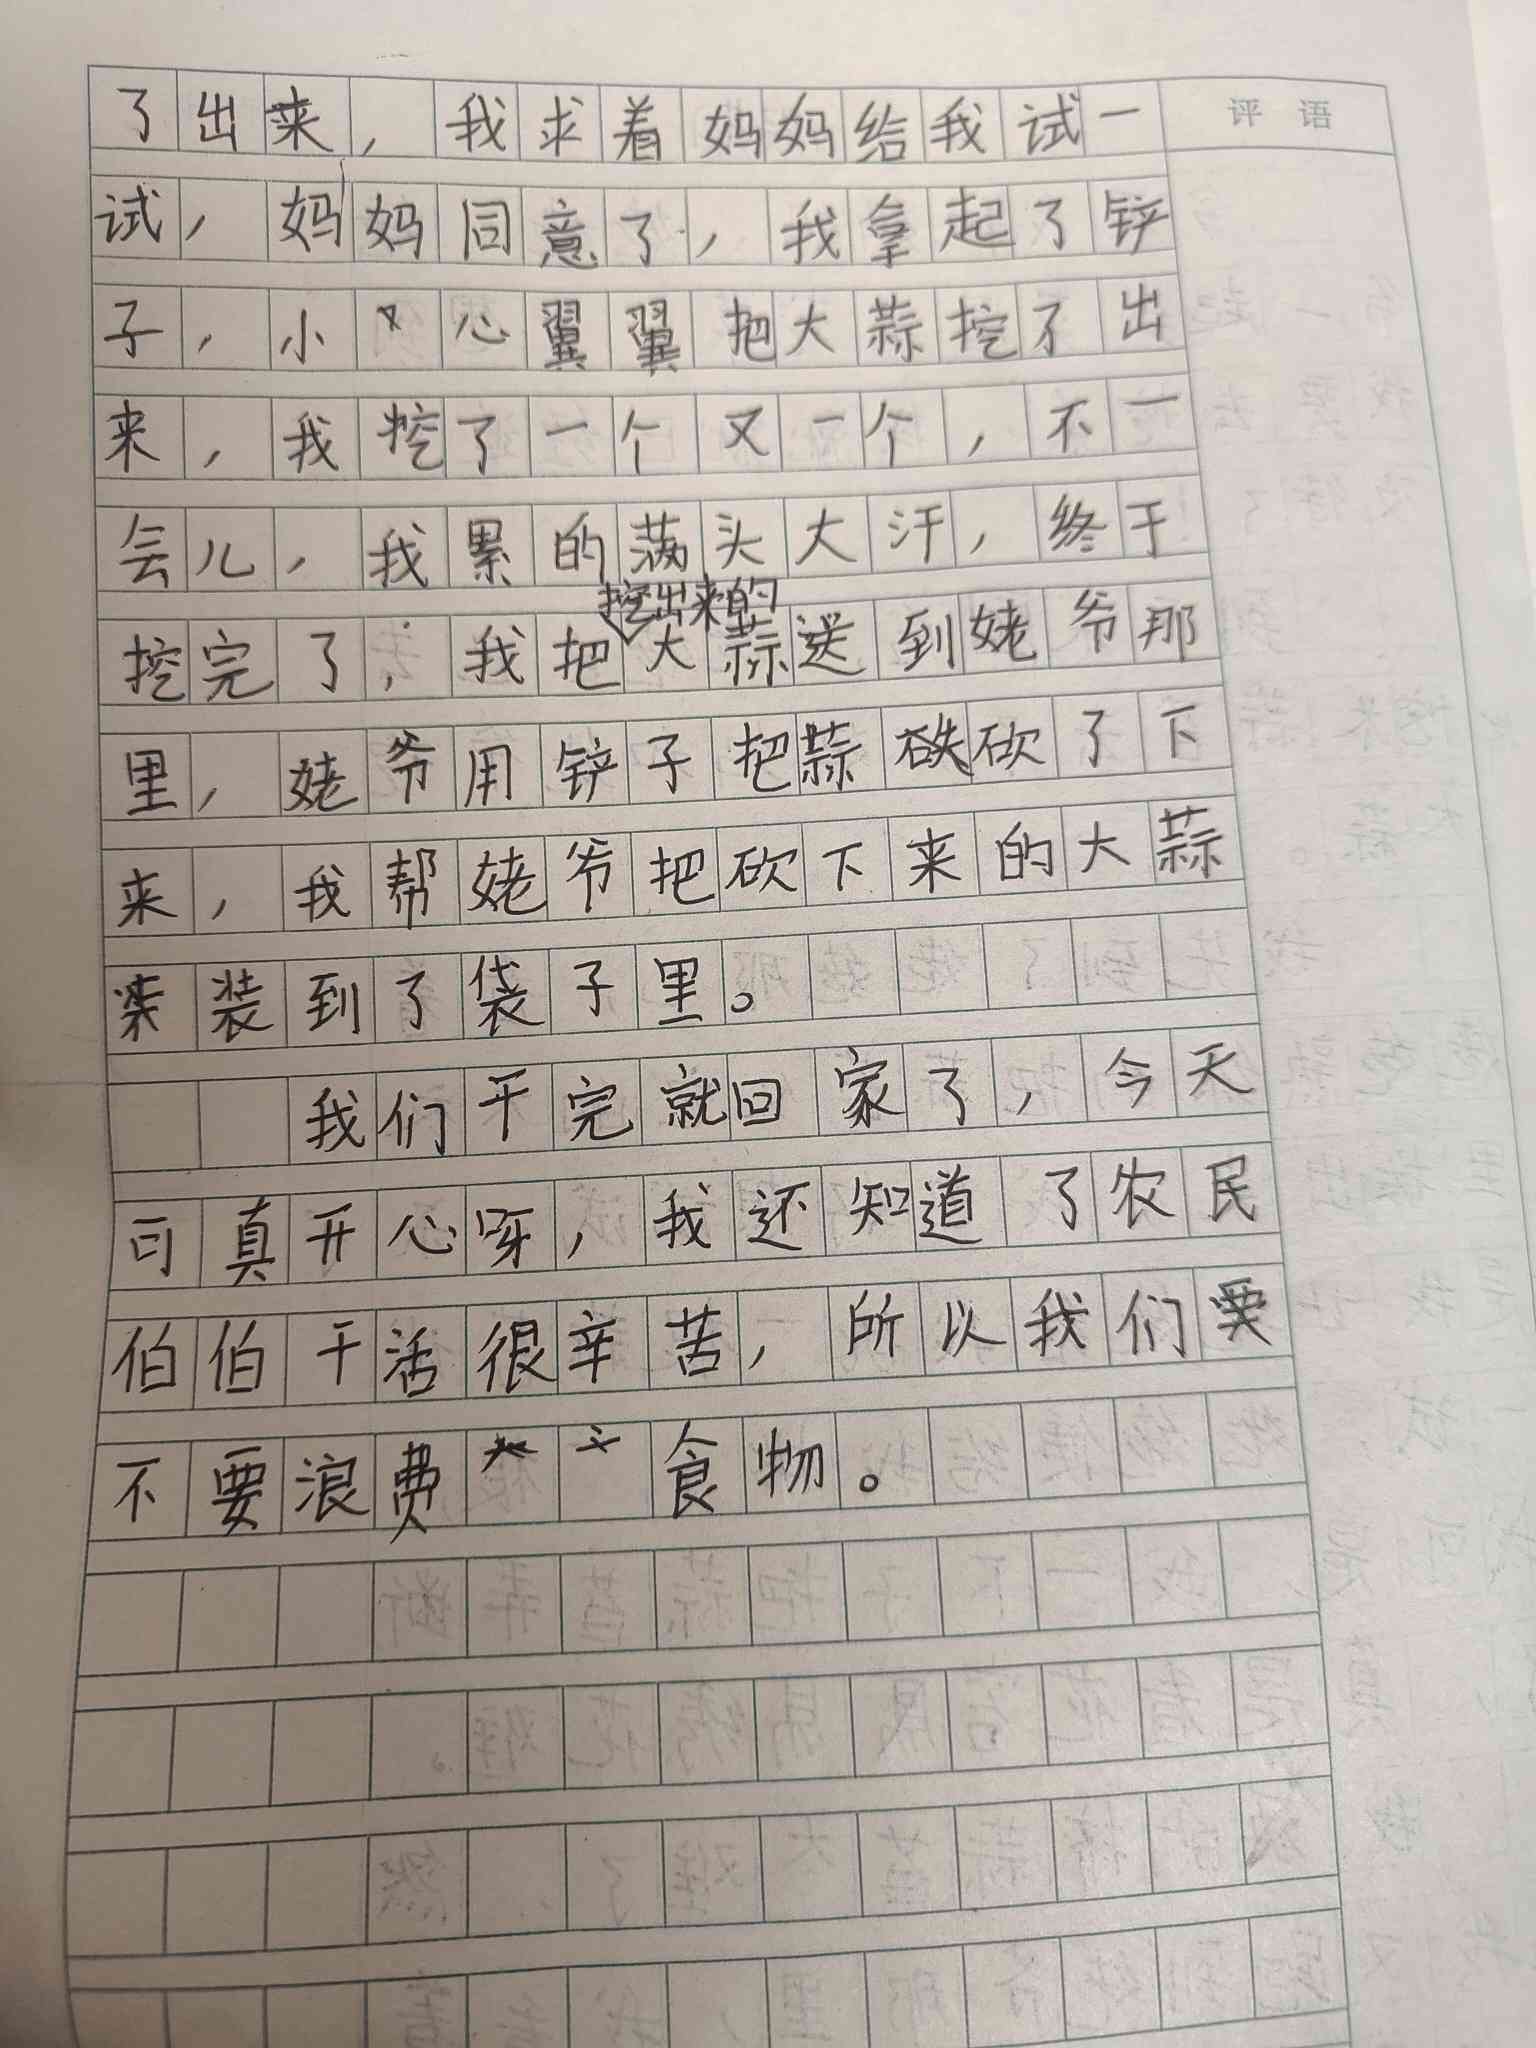 评 语
了出来，我求着妈妈给我试一
试，妈妈同意了，我拿起了铲
子，小心翼翼把大蒜挖了出
来，我挖了一个又一个，不一
会儿，我累的满头大汗，终于
挖出来的
挖完了，我把大蒜送到姥爷那
里，姥爷用铲子把蒜砍了下
来，我帮姥爷把砍下来的大蒜
装到了袋子里。
我们干完就回家了，今天
可真开心呀，我还知道了农民
伯伯干活很辛苦，所以我们要
不要浪费食物。